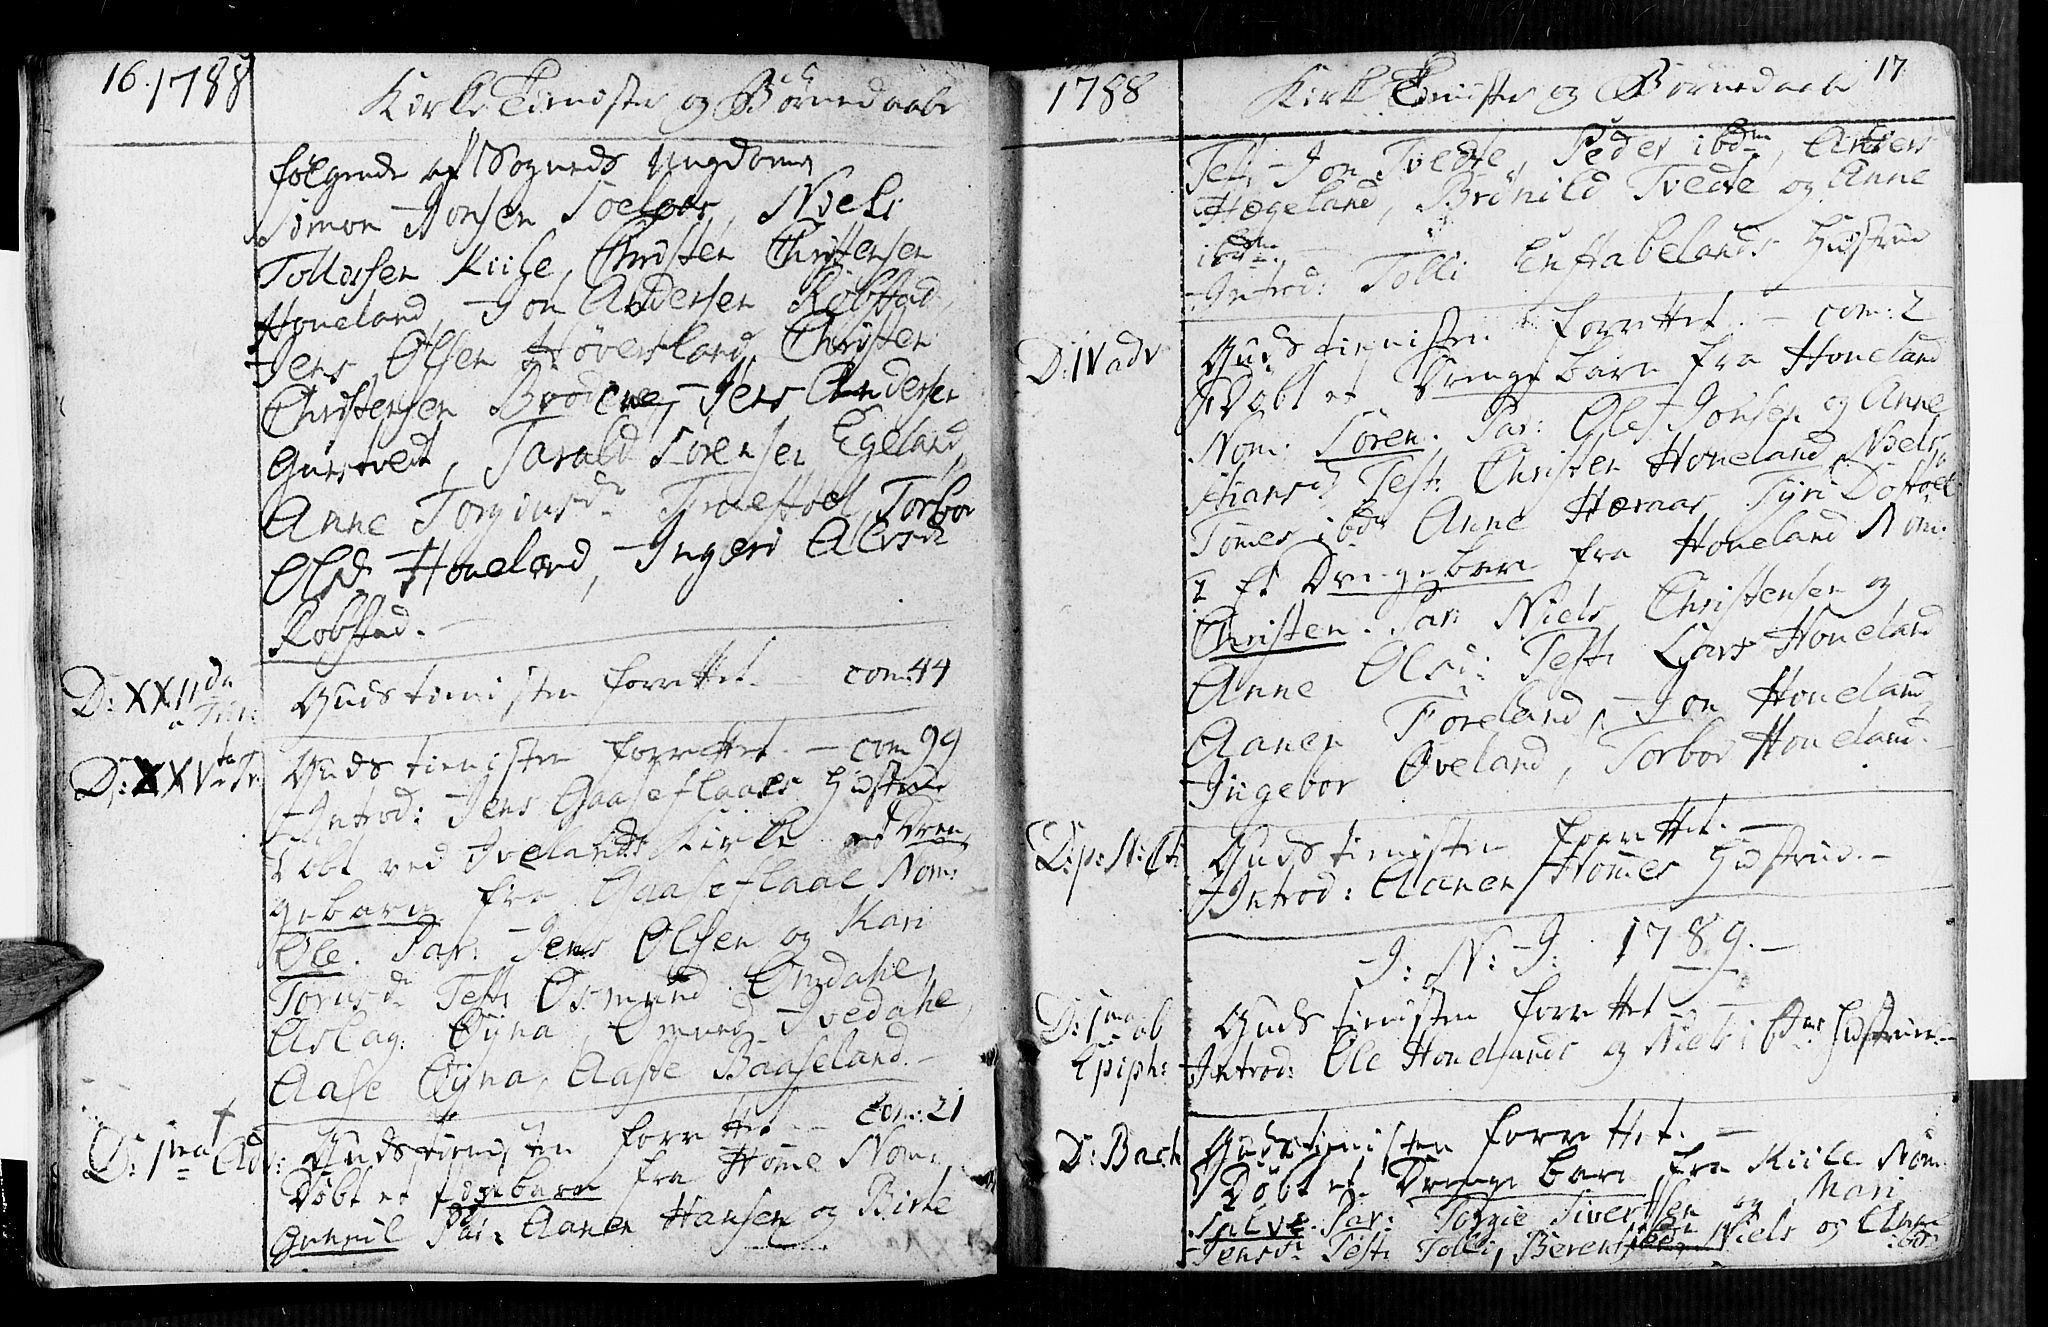 16. 1788
Kirke Tieniste og Børnedaab
følgende af Sognets Ungdom
Simon Jonsen Toelaas, Niels
Tollessen Kiile, Christen Christensen
Honeland, Jon Andersen Robstad,
Jens Olsen Høversland, Christen
Christensen Brødene, Jens Andersen
Gunstvedt, Tarald Sørensen Egeland,
Anne Torgiusdr Traeftoel, Torbor
Olsd. Honeland, Ingeri Alvsdr
Robstad.
D: XXIIda a Trin: Guds tienisten forrettet. com: 44
D: XXVta Tr Guds tienisten forrettet. com 99
Introd: Jens Gaaseflaaes Hustrue
Døbt ved Ivelands Kirke et Dren
gebarn fra Gaaseflaae Nom:
Ole. Par: Jens Olsen og Kari
Torusdr Test: Osmund Omdahl,
Aslag Øyna, Omund Ivedahl,
Aase Øyna, Aaste Baaseland.
D: 1ma Adv: Guds tienisten forrettet. com: 21
Døbt et Pigebarn fra Home Nom:
Gunvil Par: Aanen Hansen og Birte
1788
Kirke Tieniste og Børnedaab
17
Test: Jon Tvedte, Peder ibdm, Anders
Hægeland, Brønild Tvedte og Anne
ibdm
Introd: Tolli Enstabelands Hustrue
D: IV adv Guds tienisten forrettet. com: 2
Døbt et Drenge barn fra Honeland
Nom: Søren. Par: Ole Jonsen og Anne
Stiansd Test: Christen Honeland, Niels,
Tomes ibdm Anne Hæraas, Tyri
2 Et Drengebarn fra Honeland Nom:
Christen. Par: Niels Christensen og
Anne Olsd: Test: Lars Honeland
Aanen Foreland, Jon Honeland,
Ingebor Øveland, Torbor Honeland.
D: p: N: Guds tienisten forrettet.
Introd: Aanen Homes Hustrue.
J: N: J: 1789.
D: 1ma ab Guds tienisten forrettet
Epiph: Introd: Ole Honelands og Niels ibdm Hustruer.
D: Guds tienisten forrettet.
Døbt et Drenge barn fra Kiile Nom:
Salve. Par: Torgie Sivertsen og Mari
Jensdr Test: Tolli, Berent Niels og Anne
ibdm